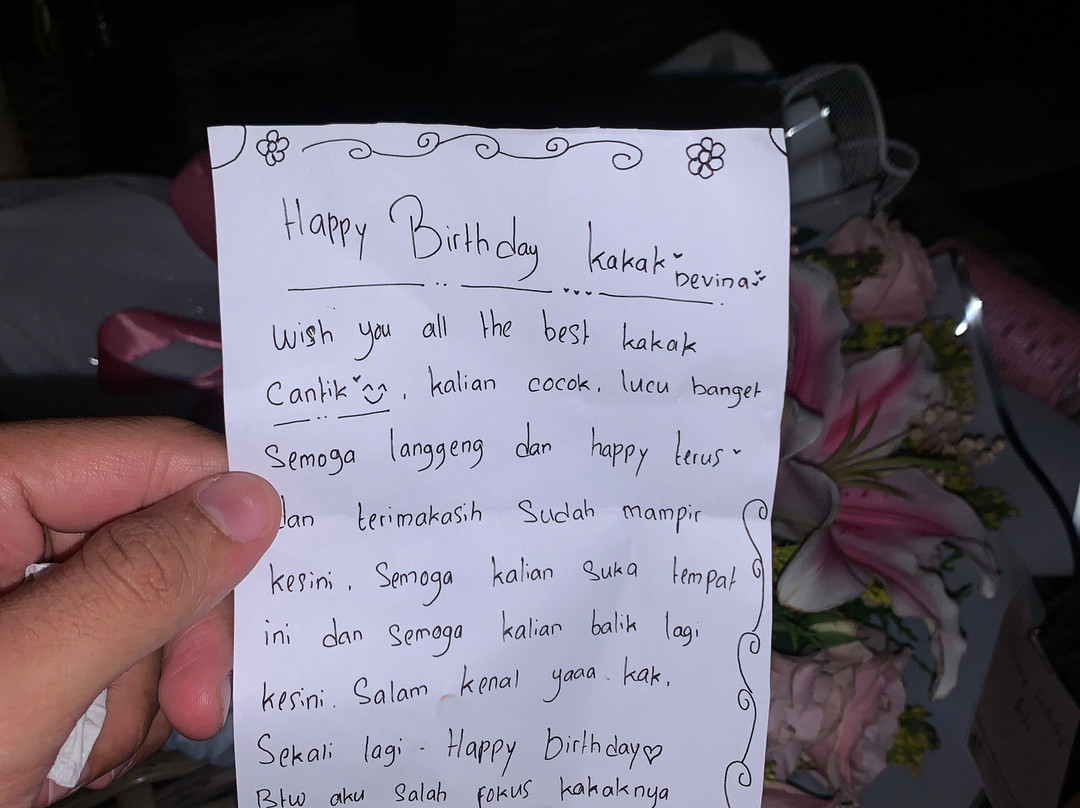 Happy Birthday kakak Devina
Wish you all the best kakak
Cantik, kalian cocok, lucu banget
Semoga langgeng dan happy terus
dan terimakasih Sudah mampir
kesini. Semoga kalian suka tempat
ini dan semoga kalian balik lagi
kesini. Salam kenal yaaa kak.
Sekali lagi - Happy Birthday♡
Btw aku salah fokus kakaknya